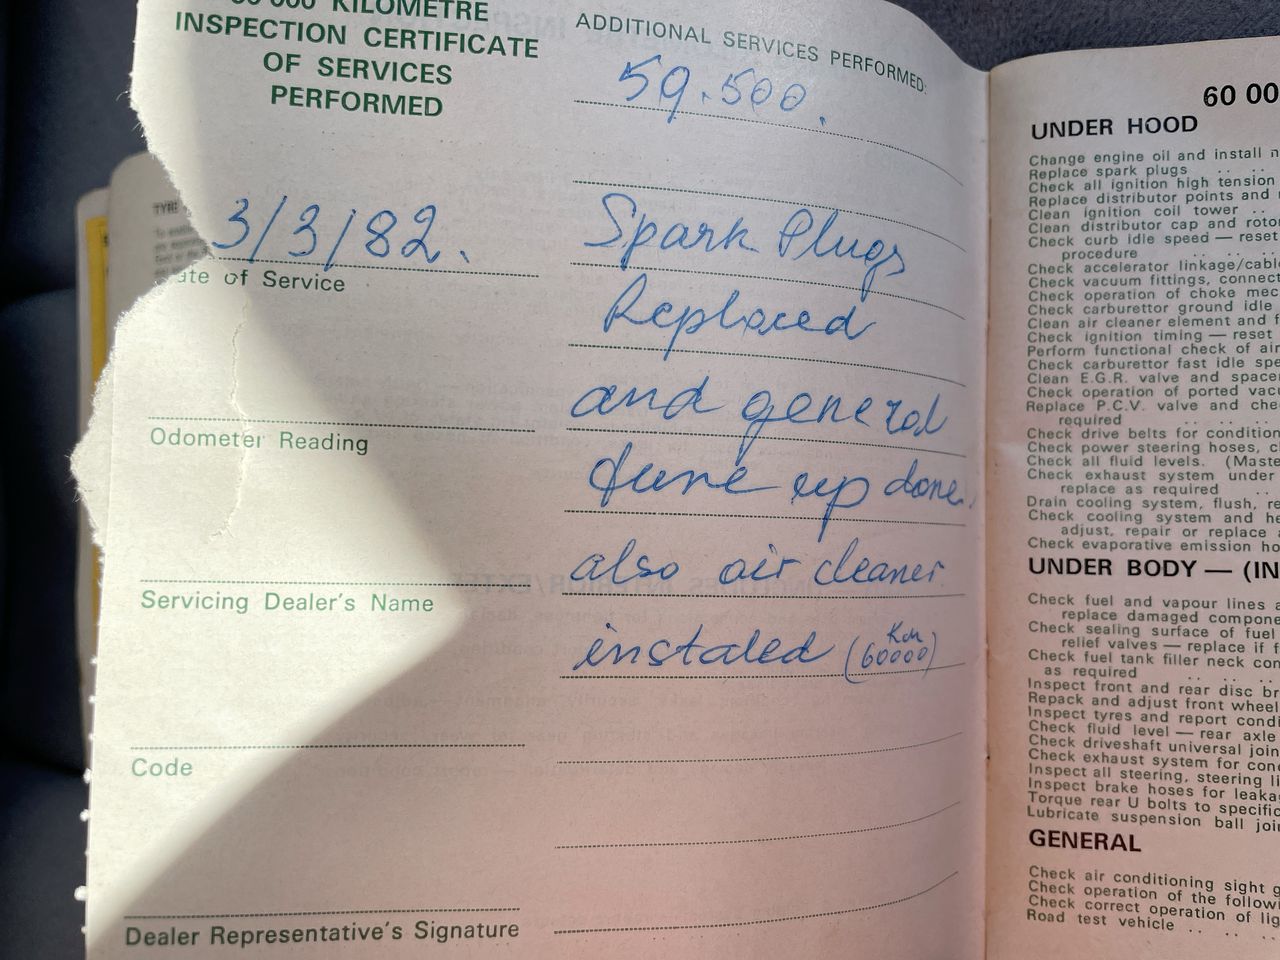 KILOMETRE
INSPECTION CERTIFICATE
OF SERVICES
PERFORMED
3/3/82.
ate of Service
Odometer Reading
Servicing Dealer's Name
Code
Dealer Representative's Signature
ADDITIONAL SERVICES PERFORMED:
59.500.
Spark Plugs
Replaced
and general
tune up done.
also air cleaner.
instaled (60000 Km)
60 00
UNDER HOOD
Change engine oil and install n
Replace spark plugs .. ..
Check all ignition high tension
Replace distributor points and
Clean ignition coil tower ..
Clean distributor cap and roto
Check curb idle speed — reset
procedure .. .. ..
Check accelerator linkage/cable
Check vacuum fittings, connect
Check operation of choke mec
Check carburettor ground idle
Clean air cleaner element and f
Check ignition timing — reset
Perform functional check of air
Check carburettor fast idle spe
Clean E.G.R. valve and space
Check operation of ported vac
Replace P.C.V. valve and che
required .. .. ..
Check drive belts for condition
Check power steering hoses, c
Check all fluid levels. (Maste
Check exhaust system under
replace as required ..
Drain cooling system, flush, re
Check cooling system and he
adjust, repair or replace a
Check evaporative emission ho
UNDER BODY — (IN
Check fuel and vapour lines a
replace damaged compone
Check sealing surface of fuel
relief valves — replace if f
Check fuel tank filler neck con
as required .. .. ..
Inspect front and rear disc br
Repack and adjust front wheel
Inspect tyres and report condi
Check fluid level — rear axle
Check driveshaft universal join
Check exhaust system for con
Inspect all steering, steering li
Inspect brake hoses for leaka
Torque rear U bolts to specific
Lubricate suspension ball join
GENERAL
Check air conditioning sight g
Check operation of the follow
Check correct operation of lig
Road test vehicle .. ..